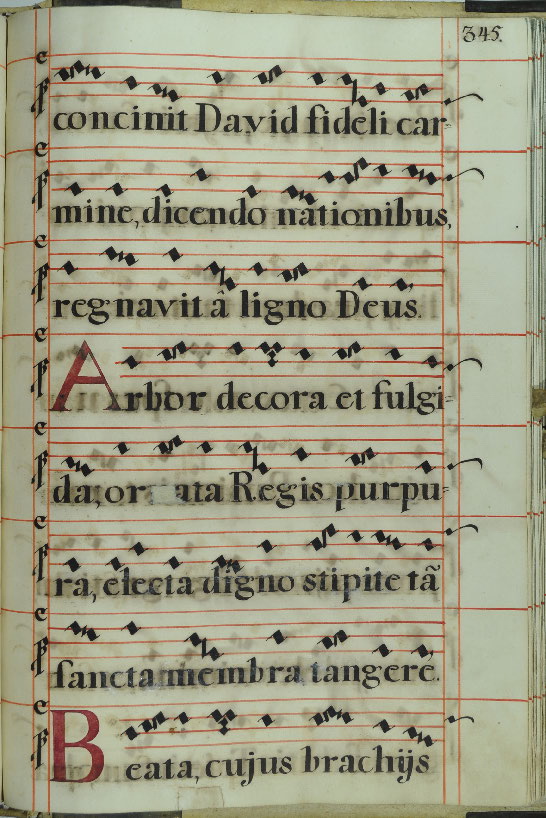 345.
concinit David fideli car-
mine, dicendo nationibus,
regnavit â ligno Deus.
Arbor decora et fulgi-
da, or ata Regis purpu-
ra, electa digno stipite tã
sancta membra tangere.
Beata, cujus brachijs